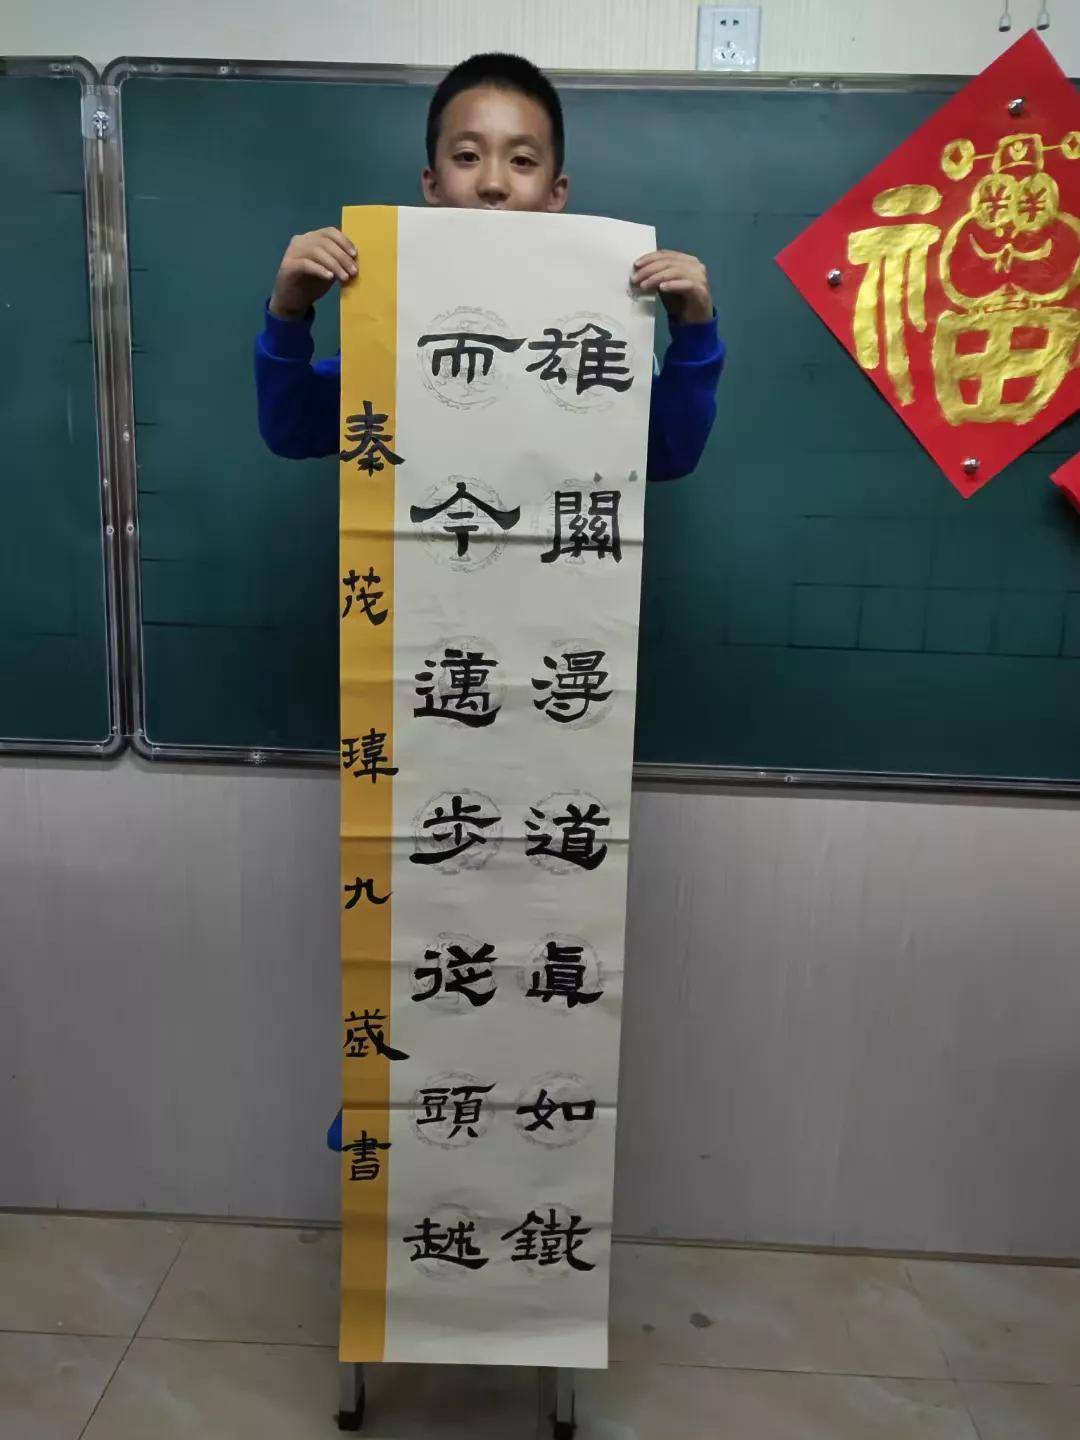 雄關漫道真如鐵
而今邁步從頭越
秦茂瑋九歲書
福